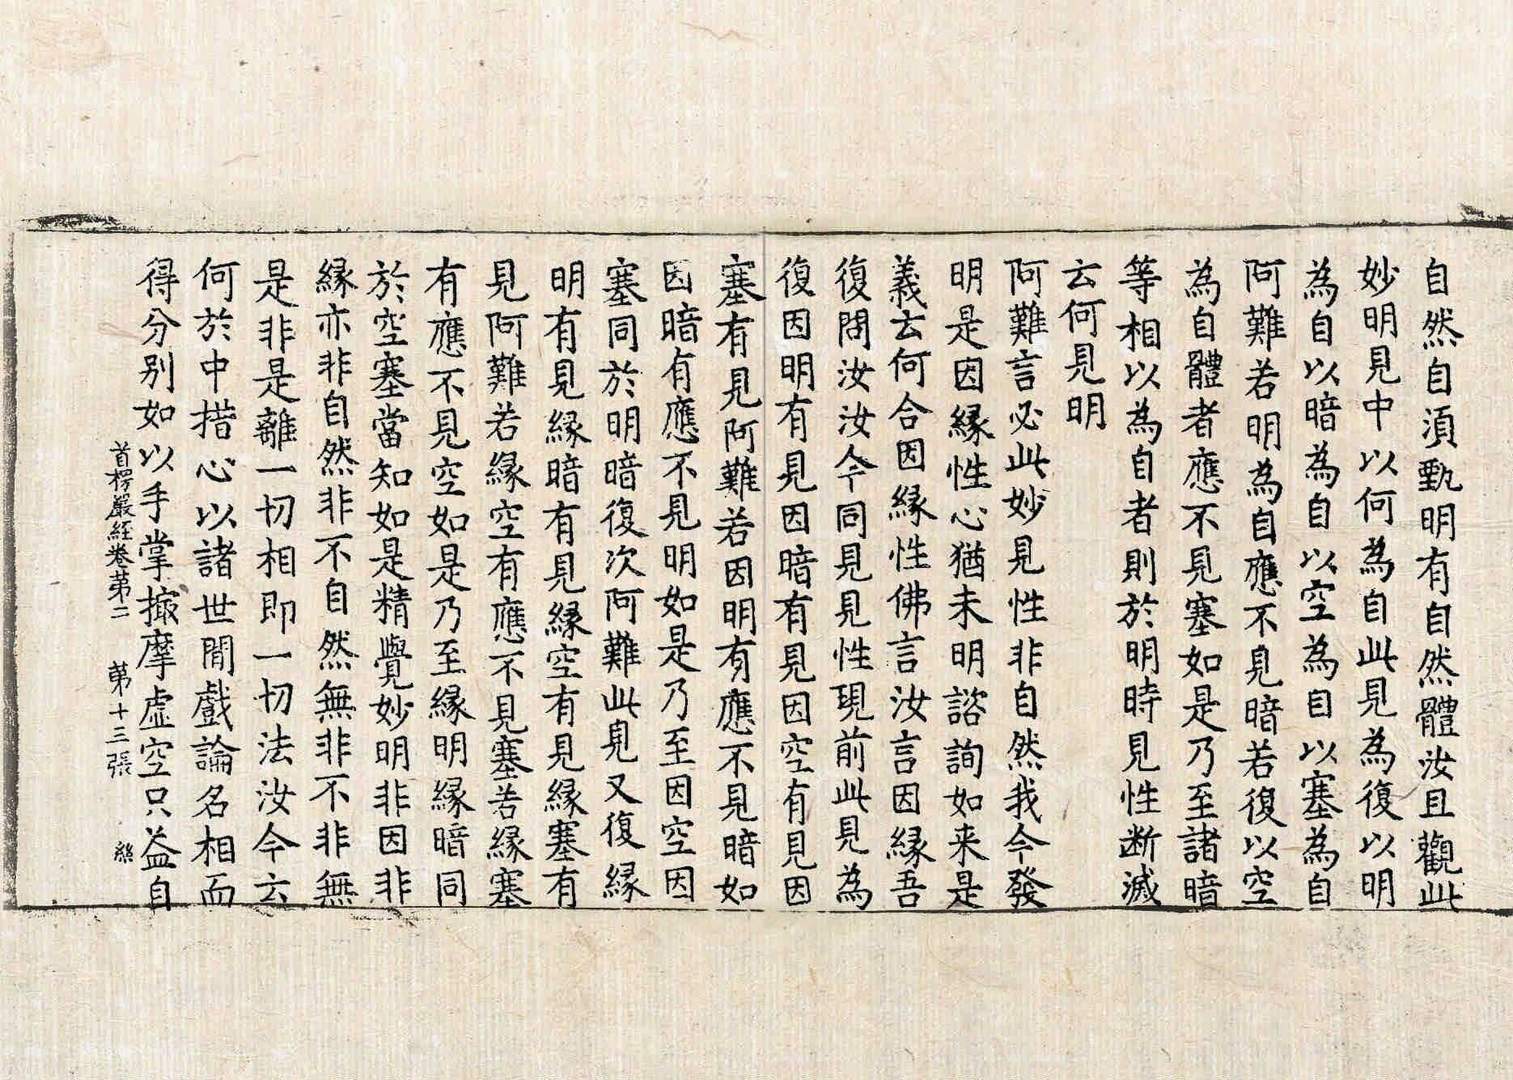 自然自湏甄明有自然體汝且觀此
妙明見中以何為自此見為復以明
為自以暗為自以空為自以塞為自
阿難若明為自應不見暗若復以空
為自體者應不見塞如是乃至諸暗
等相以為自者則於明時見性断滅
云何見明
阿難言必此妙見性非自然我今發
明是因緣性心猶未明諮詢如来是
義云何合因緣性佛言汝言因緣吾
復問汝汝今同見見性現前此見為
復因明有見因暗有見因空有見因
塞有見阿難若因明有應不見暗如
因暗有應不見明如是乃至因空因
塞同於明暗復次阿難此見又復緣
明有見緣暗有見緣空有見緣塞有
見阿難若緣空有應不見塞若緣塞
有應不見空如是乃至緣明緣暗同
於空塞當知如是精覺妙明非因非
緣亦非自然非不自然無非不非無
是非是離一切相即一切法汝今云
何於中措心以諸世間戲論名相而
得分别如以手掌撮摩虛空只益自
首楞嚴経卷苐二 苐十三張